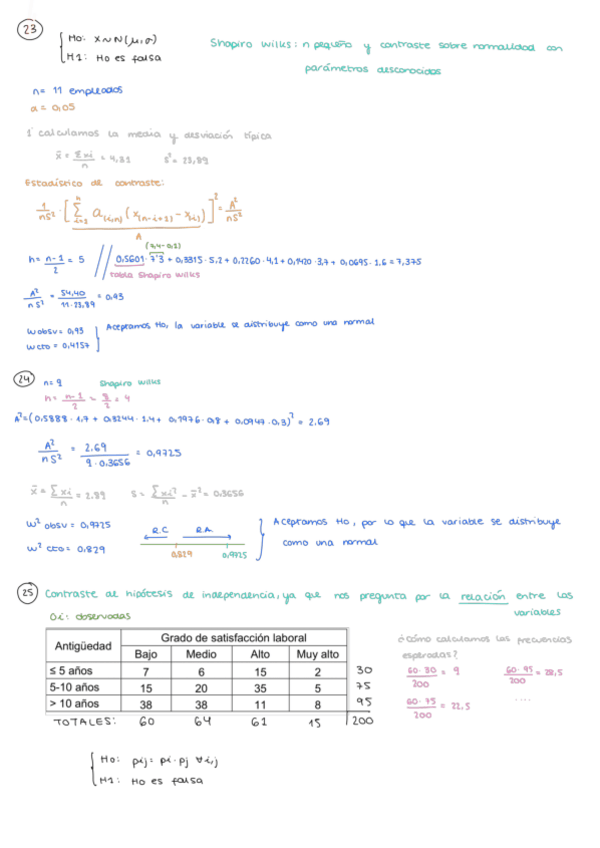 23
H0: X~N(μ,σ)
H1: Ho es falsa
Shapiro Wilks: n pequeño y contraste sobre normalidad con
parámetros desconocidos
n= 11 empleados
α = 0,05
1º calculamos la media y desviación típica
x̄ = Σxi/n = 4,81 s² = 23,89
Estadístico de contraste:
1/ns² · [Σ a(i,n) (x(n-i+1) - x(i))]² = A²/ns²
A
(7,4-0,1)
h= n-1/2 = 5 // 0,5601 · 7'3 + 0,3315 · 5,2 + 0,2260 · 4,1 + 0,1420 · 3,7 + 0,0695 · 1,6 = 7,375
tabla Shapiro Wilks
A²/ns² = 54,40/11·23,89 = 0,93
W obsv = 0,93
W cto = 0,4157
Aceptamos Ho, la variable se distribuye como una normal
24 n= 9 Shapiro Wilks
h= n-1/2 = 8/2 = 4
A²= (0,5888 · 1,7 + 0,3244 · 1,4 + 0,1976 · 0,8 + 0,0947 · 0,3)² = 2.69
A²/ns² = 2.69/9 · 0.3656 = 0,9725
x̄ = Σxi/n = 2.89 s = Σxi²/n - x̄² = 0.3656
W² obsv = 0,9725
W² cto = 0.829
R.C R.A.
0.829 0,9725
Aceptamos Ho, por lo que la variable se distribuye
como una normal
25 Contraste de hipótesis de independencia, ya que nos pregunta por la relación entre las
variables
Oi: observadas
Antigüedad Grado de satisfacción laboral
Bajo Medio Alto Muy alto
≤ 5 años 7 6 15 2 30
5-10 años 15 20 35 5 75
> 10 años 38 38 11 8 95
TOTALES: 60 64 61 15 200
¿Cómo calculamos las frecuencias
esperadas?
60·30/200 = 9 60·95/200 = 28,5
60·75/200 = 22,5 ....
Ho: pij= pi·pj ∀i,j
H1: Ho es falsa